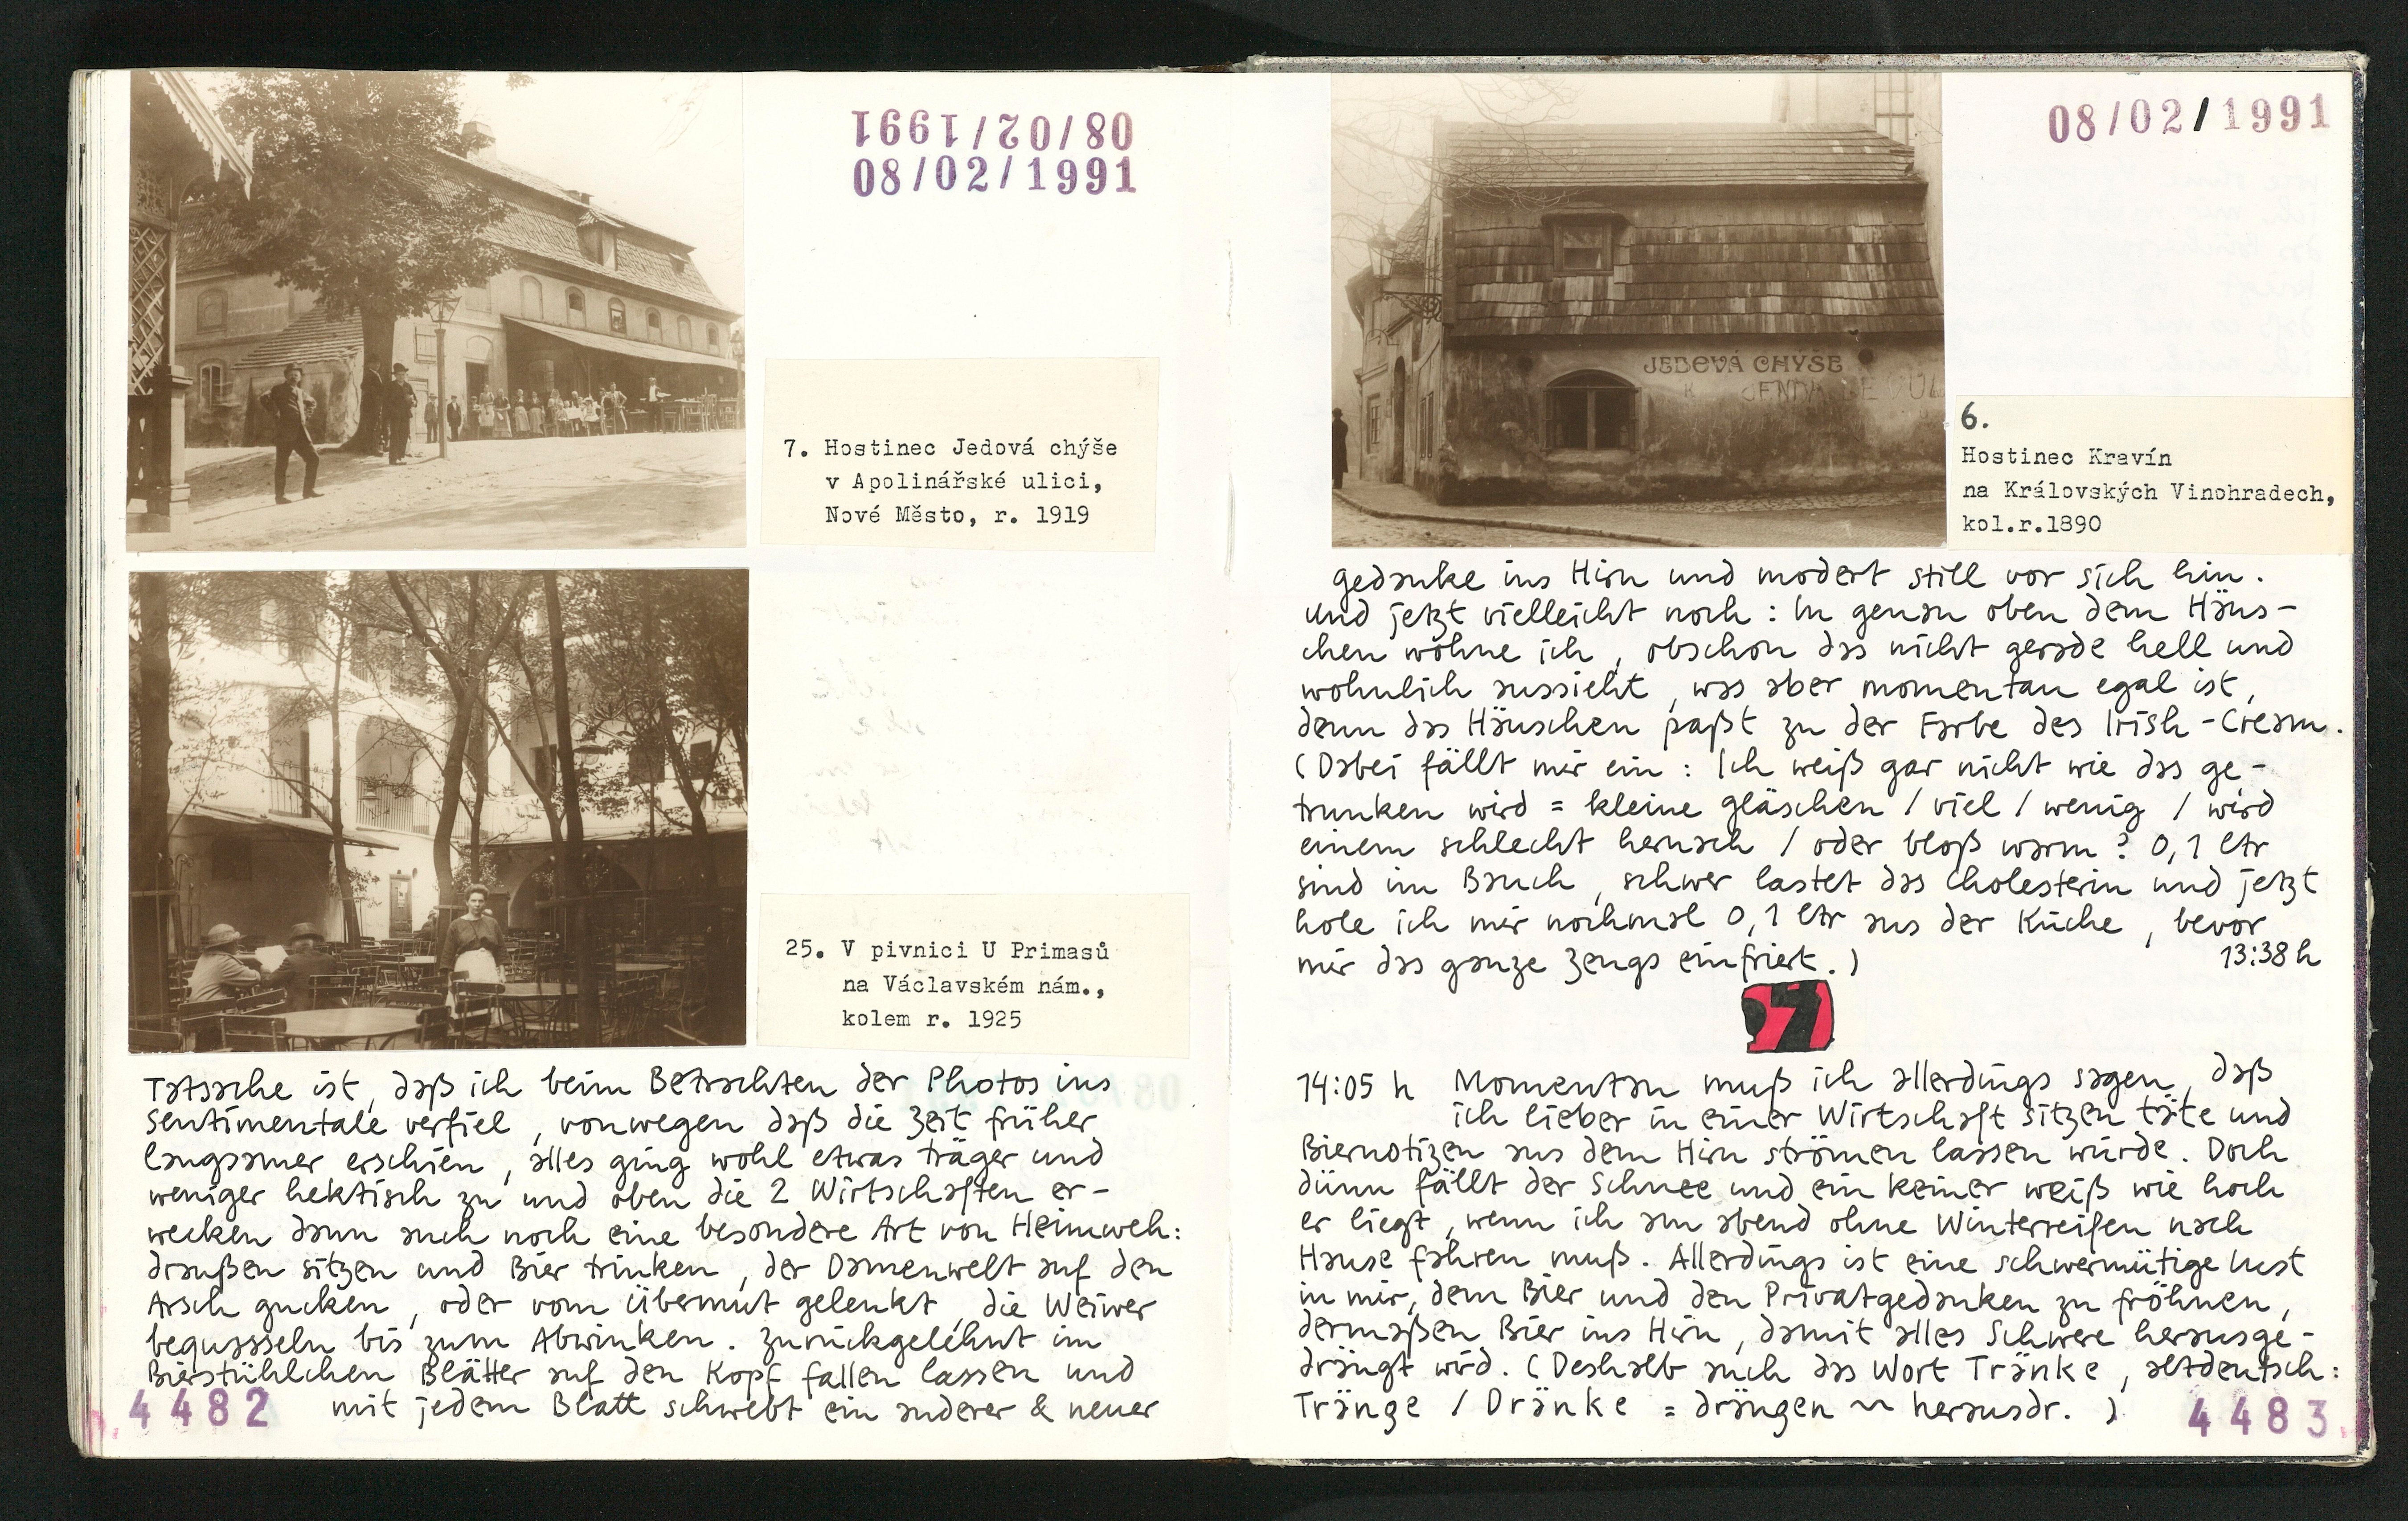 08/02/1991
08/02/1991
7. Hostinec Jedová chýše
v Apolinářské ulici,
Nové Město, r. 1919
25. V pivnici U Primasů
na Václavském nám.,
kolem r. 1925
Tatsache ist, daß ich beim Betrachten der Photos ins
Sentimentale verfiel, vonwegen daß die Zeit früher
langsamer erschien, alles ging wohl etwas träger und
weniger hektisch zu und oben die 2 Wirtschaften er-
wecken dann auch noch eine besondere Art von Heimweh:
draußen sitzen und Bier trinken, der Damenwelt auf den
Arsch gucken, oder vom Übermut gelenkt, die Weiwer
bequasseln bis zum Abwinken. Zurückgelehnt im
Bierstühlchen Blätter auf den Kopf fallen lassen und
mit jedem Blatt schwebt ein anderer & neuer
4482
08/02/1991
JEDOVÁ CHÝŠE
6.
Hostinec Kravín
na Královských Vinohradech,
kol.r.1890
gedanke ins Hirn und modert still vor sich hin.
Und jetzt vielleicht noch: In genau oben dem Häus-
chen wohne ich, obschon das nicht gerade hell und
wohnlich aussieht, was aber momentan egal ist,
denn das Häuschen paßt zu der Farbe des Irish-Cream.
(Dabei fällt mir ein: Ich weiß gar nicht wie das ge-
trunken wird = kleine gläschen / viel / wenig / wird
einem schlecht hernach / oder bloß warm? 0,1 ltr
sind im Bauch, schwer lastet das Cholesterin und jetzt
hole ich mir nochmal 0,1 ltr aus der Küche, bevor
mir das ganze Zeugs einfriert.)
13:38 h
14:05 h Momentan muß ich allerdings sagen, daß
ich lieber in einer Wirtschaft sitzen täte und
Biernotizen aus dem Hirn strömen lassen würde. Doch
dünn fällt der Schnee und ein keiner weiß wie hoch
er liegt, wenn ich am abend ohne Winterreifen nach
Hause fahren muß. Allerdings ist eine schwermütige Lust
in mir, dem Bier und den Privatgedanken zu fröhnen,
dermaßen Bier ins Hirn, damit alles Schwere herausge-
drängt wird. (Deshalb auch das Wort Tränke, altdeutsch:
Tränge / Dränke = drängen ~ herausdr. )
4483